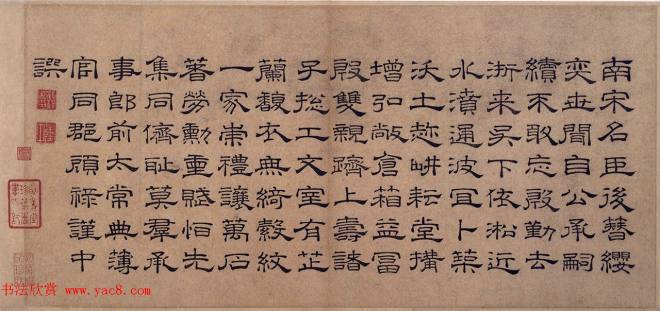 南宋名臣後簪纓
奕世聞自公承嗣
續不敢忘殷勤去
浙来吴下依淞近
水濆通波宜卜築
沃土趁畊耘堂搆
增弘敞倉箱益富
殷雙親躋上壽諸
子揔工文室有芷
蘭馥衣無綺縠紋
一家崇禮讓萬石
著勞勳重賦怕先
集同儕恥莫羣承
事郎前太常典簿
官同郡顧祿謹中
譔
书法欣赏 www.yac8.com